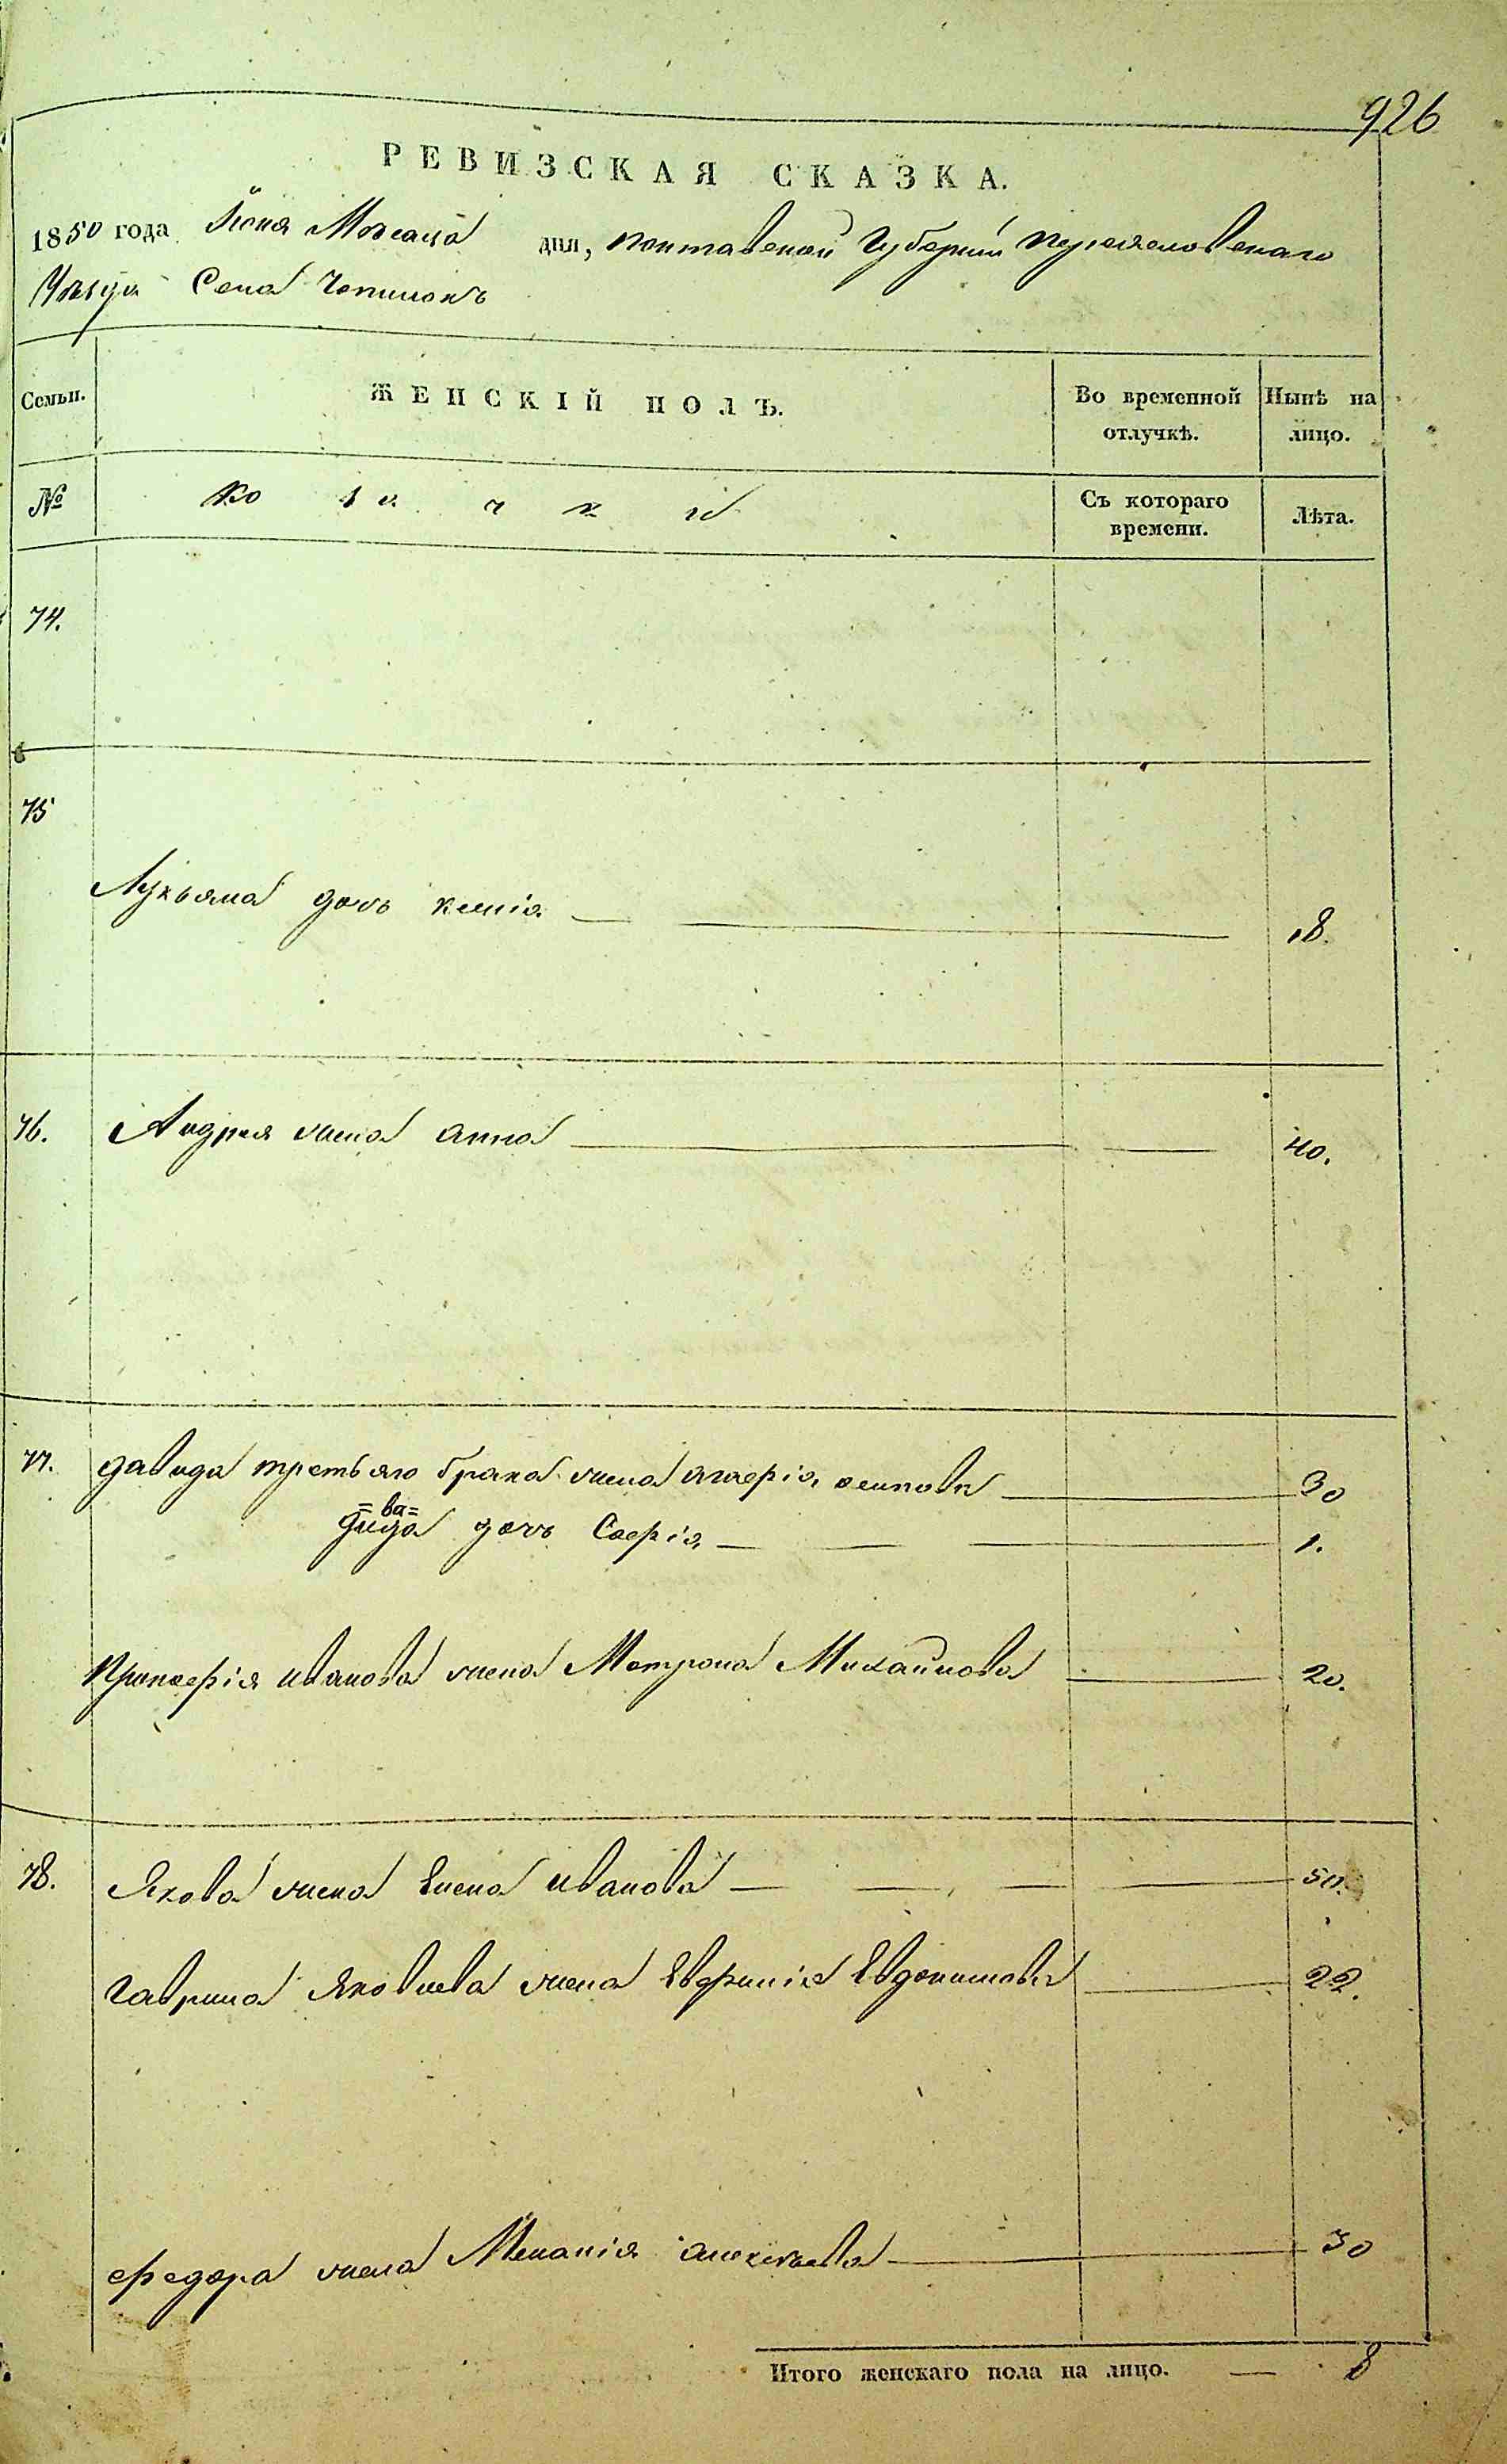 926
РЕВИЗСКАЯ СКАЗКА.
1850 года Іюня Месяца дня, Полтавской Губерніи Переяславскаго
Уезда Села Чопилокъ
Семьи. ЖЕНСКІЙ ПОЛЪ. Во временной отлучкѣ. Нынѣ на лицо.
№ Ко за ч к и Съ котораго времени. Лѣта.
74.
75
Лукьяна дочь Ксенія 18.
76. Андрея жена Анна 40.
77. Давида третьяго брака жена Гликерія 30
=ва=
Дида дочь Софія 1.
Прокофія Иванова жена Мотрона Михайлова 20.
78. Якова жена Елена Иванова 50.
Гаврила Яковлева жена Евфимія Евдокимова 22.
Федора жена Меланія Алексеева 30
Итого женскаго пола на лицо. — 8